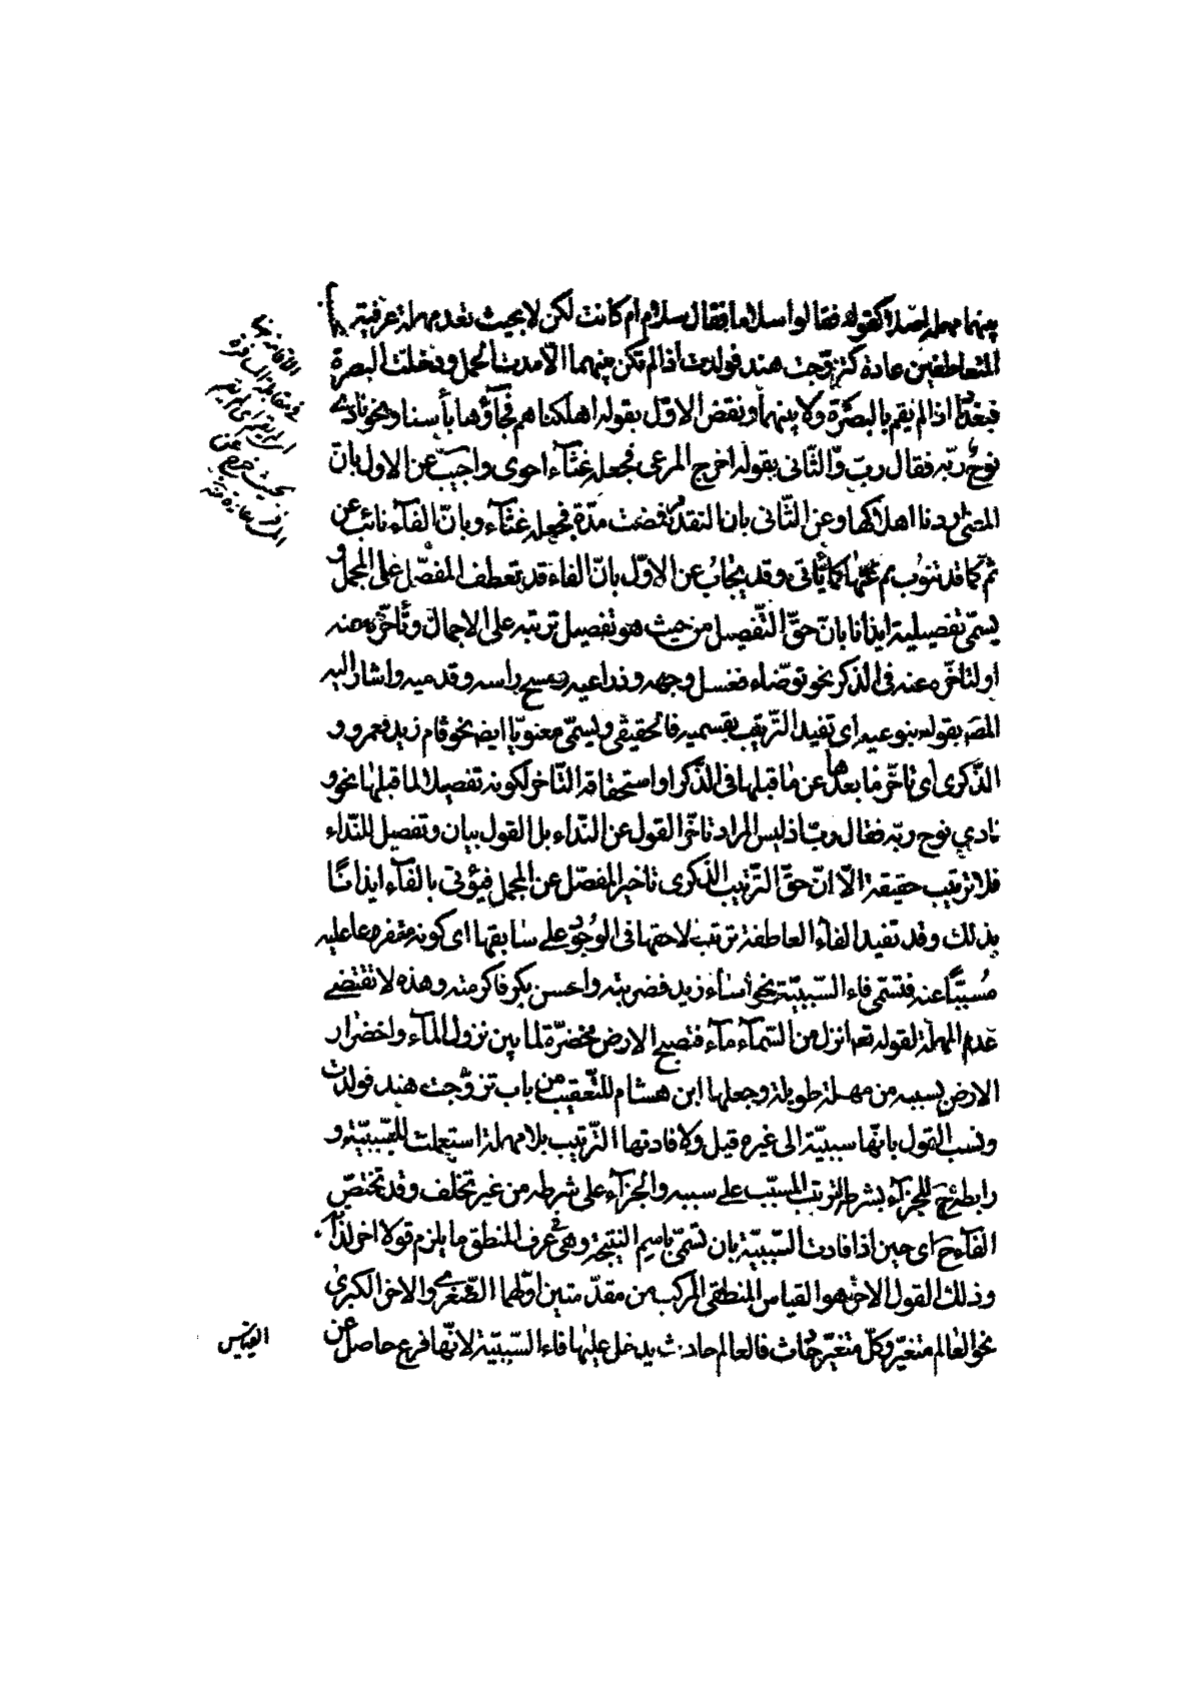 بينهما مهملة اصلا كقوله فقالوا سلاما فقال سلام ام كانت لكن لا بحيث تعد مهملة عرفية
للمتعاطفين عادة كتزوجت هند فولدت اذا لم تكن بينهما الا مدت الحمل ودخلت البصرة
فبغداد اذا لم يقم بالبصرة ولا بينهما ونقض الاول بقوله اهلكناهم فجآؤها بأسنا ونحو نادى
نوح ربه فقال رب والثانى بقوله اخرج المرعى فجعله غثآء احوى واجيب عن الاول بان
المعنى اردنا اهلاكها وعن الثانى بان التقدير فمضت مدة فجعله غثآء وبان الفآء نائب عن
ثم كما قد تنوب ثم عنها كما يأتى وقد يجاب عن الاول بان الفاء قد تعطف المفصل على المجمل و
يسمى تفصيلية ايذانا بان حق التفصيل من حيث هو تفصيل ترتبه على الاجمال وتأخره عنه
او لتاخره عنه فى الذكر نحو توضاء فغسل وجهه وذراعيه ومسح راسه وقدميه واشار اليه
المص بقوله بنوعيه اى تفيد الترتيب بقسميه فالحقيقى ويسمى معنويا ايضا نحو قام زيد فعمرو و
الذكرى اى تاخر ما بعدها عن ما قبلها فى الذكر او استحقاقه التاخر لكونه تفصيلا لما قبلها نحو و
نادي نوح ربه فقال رب اذ ليس المراد تاخر القول عن النداء بل القول بيان وتفصيل للنداء
فلا ترتيب حقيقة الا ان حق الترتيب الذكرى تاخير المفصل عن المجمل فيؤتى بالفآء ايذانًا
بذلك وقد تفيد الفاء العاطفة ترتب لاحقها فى الوجود على سابقها اى كونه متفرعا عليه
مُسببًا عنه فتسمى فاء السببية نحو اساء زيد فضربته واحسن بكر فاكرمته وهذه لا تقتضى
عدم المهلة لقوله تعه انزل من السمآء مآء فتصبح الارض مخضرة لما بين نزول المآء واخضرار
الارض بسببه من مهلة طويلة وجعلها ابن هشام للتعقيب من باب تزوجت هند فولدت
ونسب القول بانها سببية الى غيره قيل ولافادتها الترتيب بلا مهلة استعملت للسببية و
رابطة للجزآء بشرطه لترتب المسبب على سببه والجزآء على شرطه من غير تخلف وقد تختص
الفآء ح اى حين اذا فادت السببية بان تسمى باسم النتيجة وهى فى عرف المنطق ما يلزم قولا اخر لذاته
وذلك القول الاخر هو القياس المنطقى المركب من مقدمتين اوليهما الصغرى والاخر الكبرى
نحو العالم متغير وكل متغير حادث فالعالم حادث يدخل عليها فاء السببية لانها فرع حاصل عن
القياس